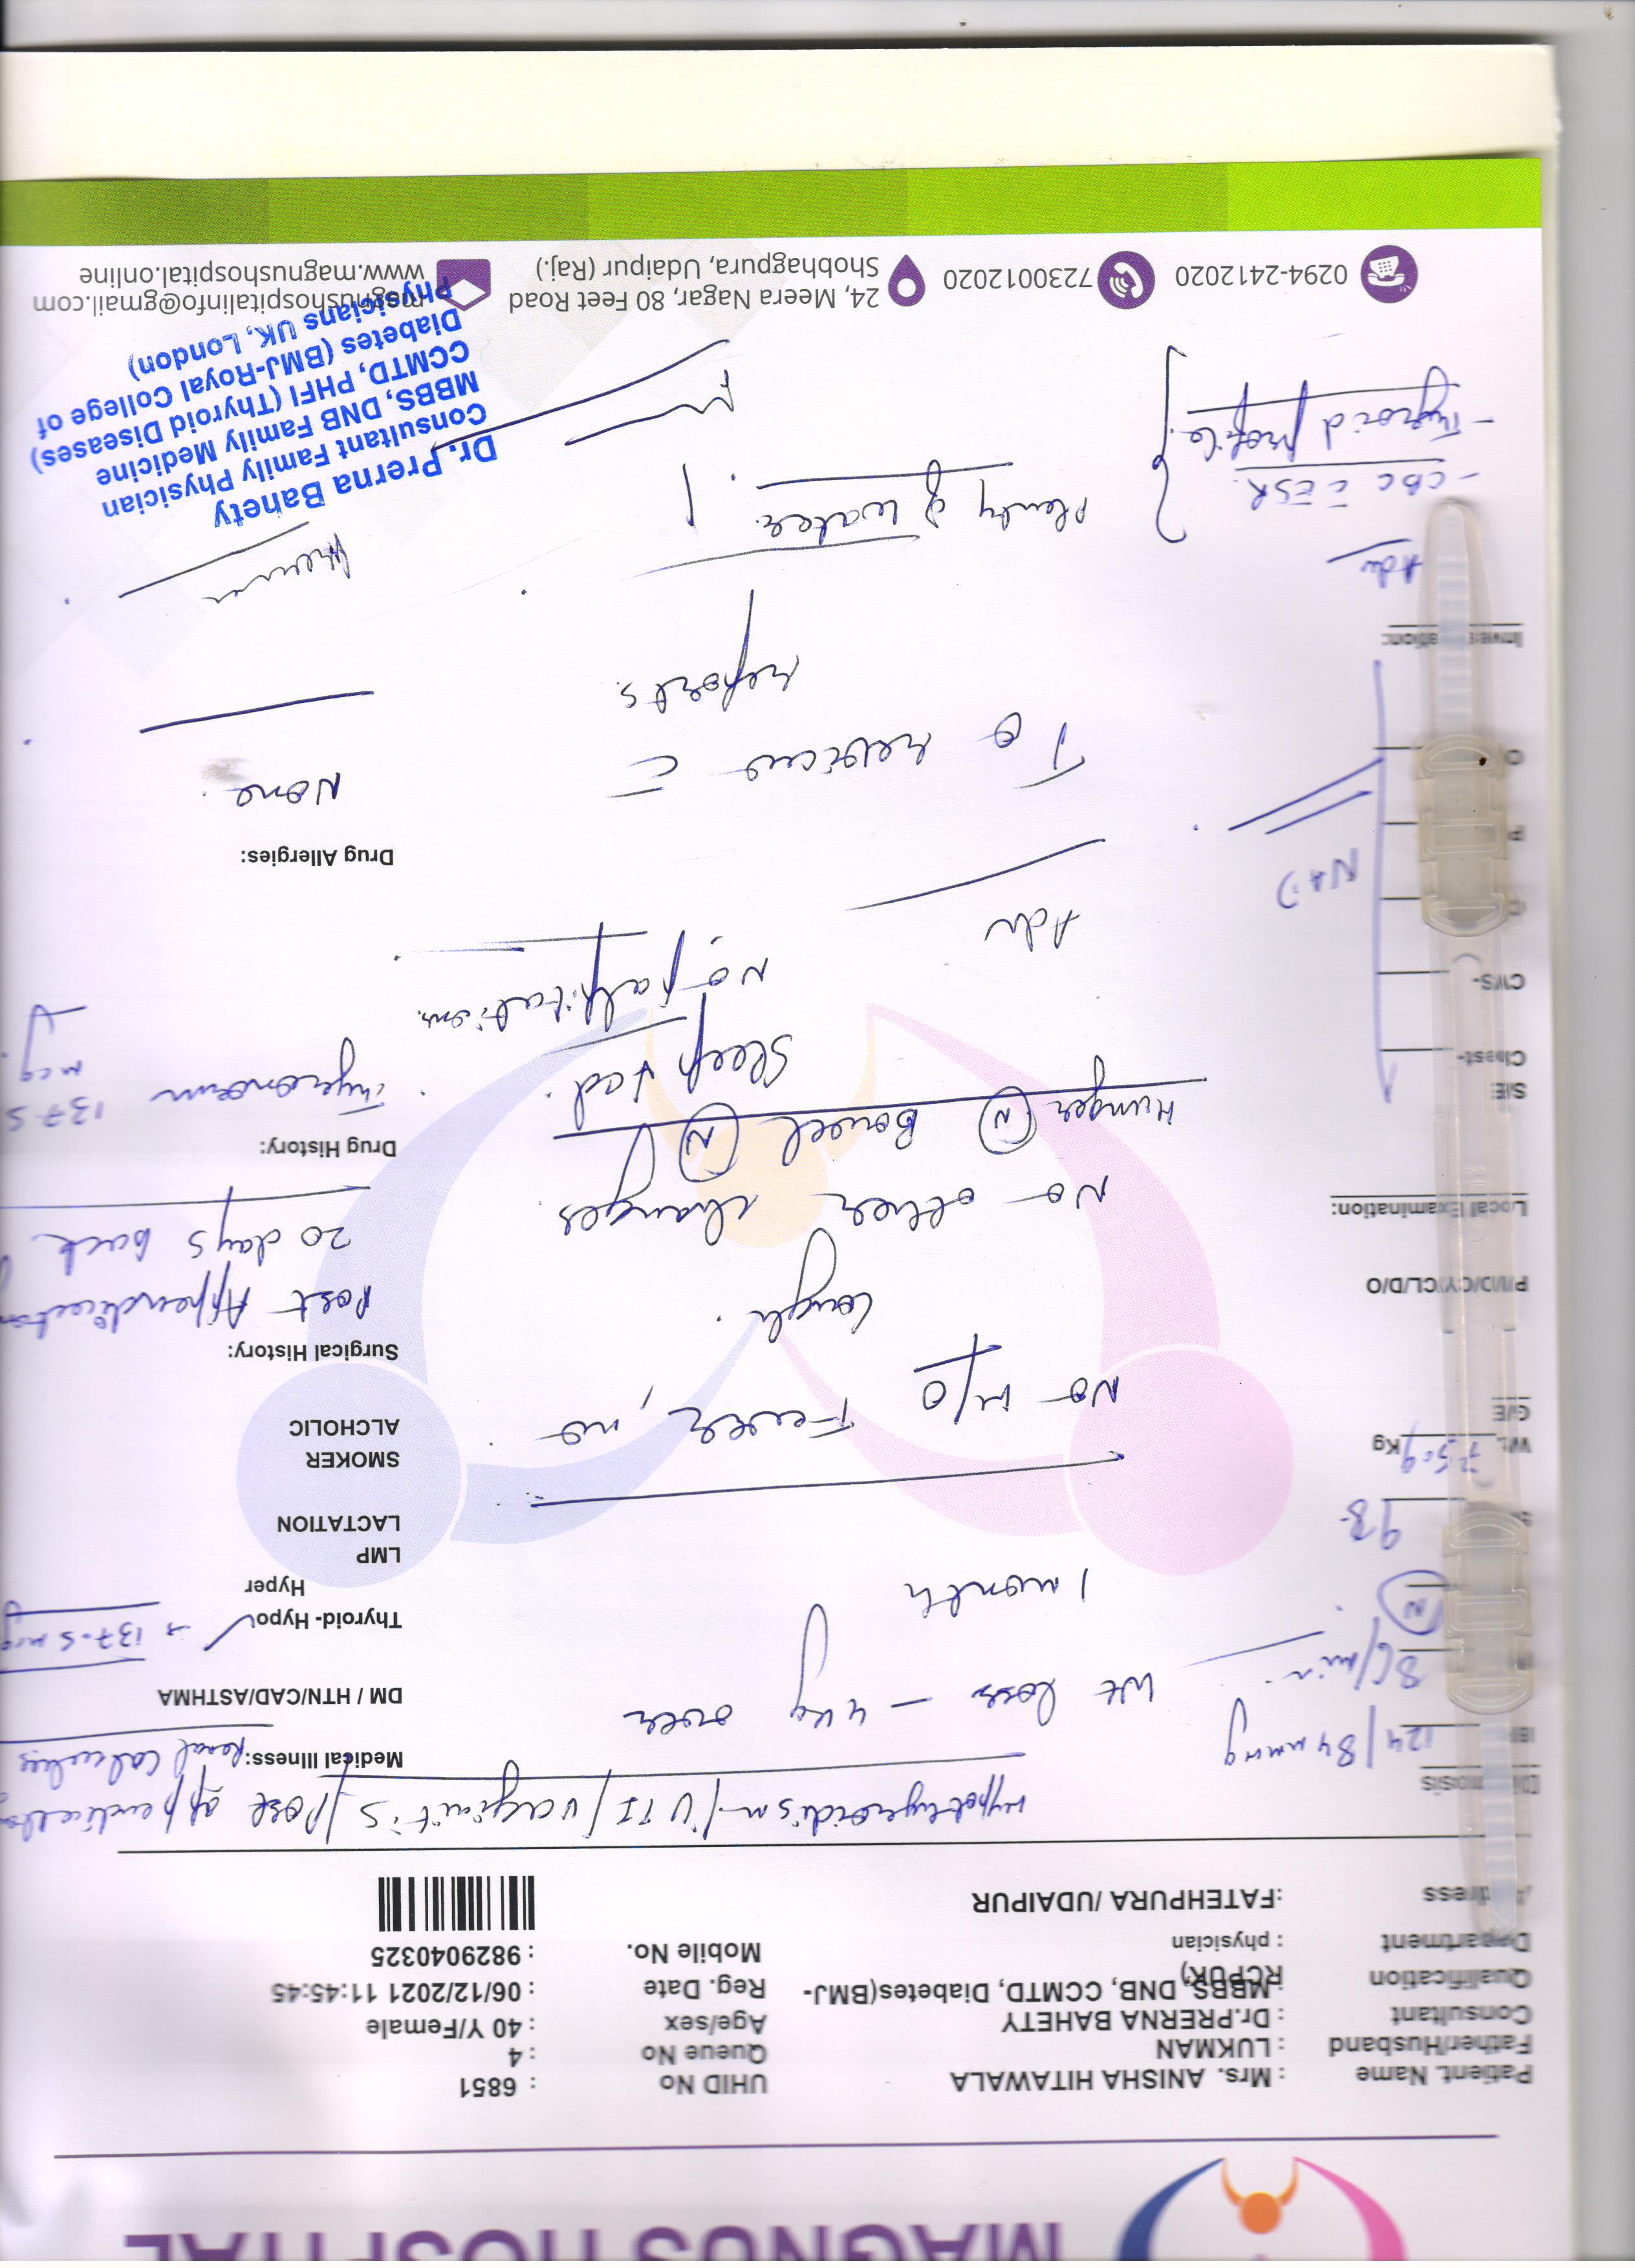 MAGNUS HOSPITAL
Patient Name : Mrs. ANISHA HITAWALA UHID No : 6851
Father/Husband : LUKMAN Queue No : 4
Consultant : Dr.PRERNA BAHETY Age/sex : 40 Y/Female
Qualification : MBBS, DNB, CCMTD, Diabetes(BMJ-RCPUK) Reg. Date : 06/12/2021 11:45:45
Department : physician Mobile No. : 9829040325
Address :FATEHPURA /UDAIPUR
Hypothyroidism / UTI / vaginitis / Post appendicectomy
124/84 mmHg
86/min
N
98
Wt. 75.9 Kg
G/E
P/I/D/C/Y/CL/D/O
Local Examination:
S/E
Chest-
CVS-
NAD
Investigation:
Adv
- CBC c ESR
- Thyroid profile
Wt loss - 4 kg over
1 month
No H/O Fever, no
Cough.
No other changes
Hunger N Bowel N
Sleep
No palpitations.
Adv
To review c
reports.
Plenty of water.
Medical Illness: Renal Calculus
DM / HTN/CAD/ASTHMA
Thyroid- Hypo → 137.5 mcg
Hyper
LMP
LACTATION
SMOKER
ALCHOLIC
Surgical History:
Post Appendicectomy
20 days back
Drug History:
Thyronorm 137.5
mcg
Drug Allergies:
None
Dr. Prerna Bahety
Consultant Family Physician
MBBS, DNB Family Medicine
CCMTD, PHFI (Thyroid Diseases)
Diabetes (BMJ-Royal College of
Physicians UK, London)
0294-2412020
7230012020
24, Meera Nagar, 80 Feet Road
Shobhagpura, Udaipur (Raj.)
magnushospitalinfo@gmail.com
www.magnushospital.online